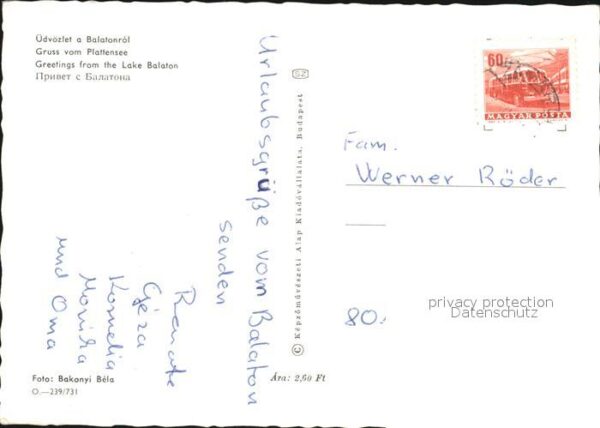 Üdvözlet a Balatonról
Gruss vom Plattensee
Greetings from the Lake Balaton
Привет с Балатона
Urlaubsgrüße vom Balaton
senden
Renate
Géza
Kornelia
Monika
und Oma
Foto: Bakonyi Béla
O.—239/731
© Képzőművészeti Alap Kiadóvállalata, Budapest
SZ
Ára: 2,60 Ft
60
MAGYAR POSTA
Fam.
Werner Röder
80.
privacy protection
Datenschutz